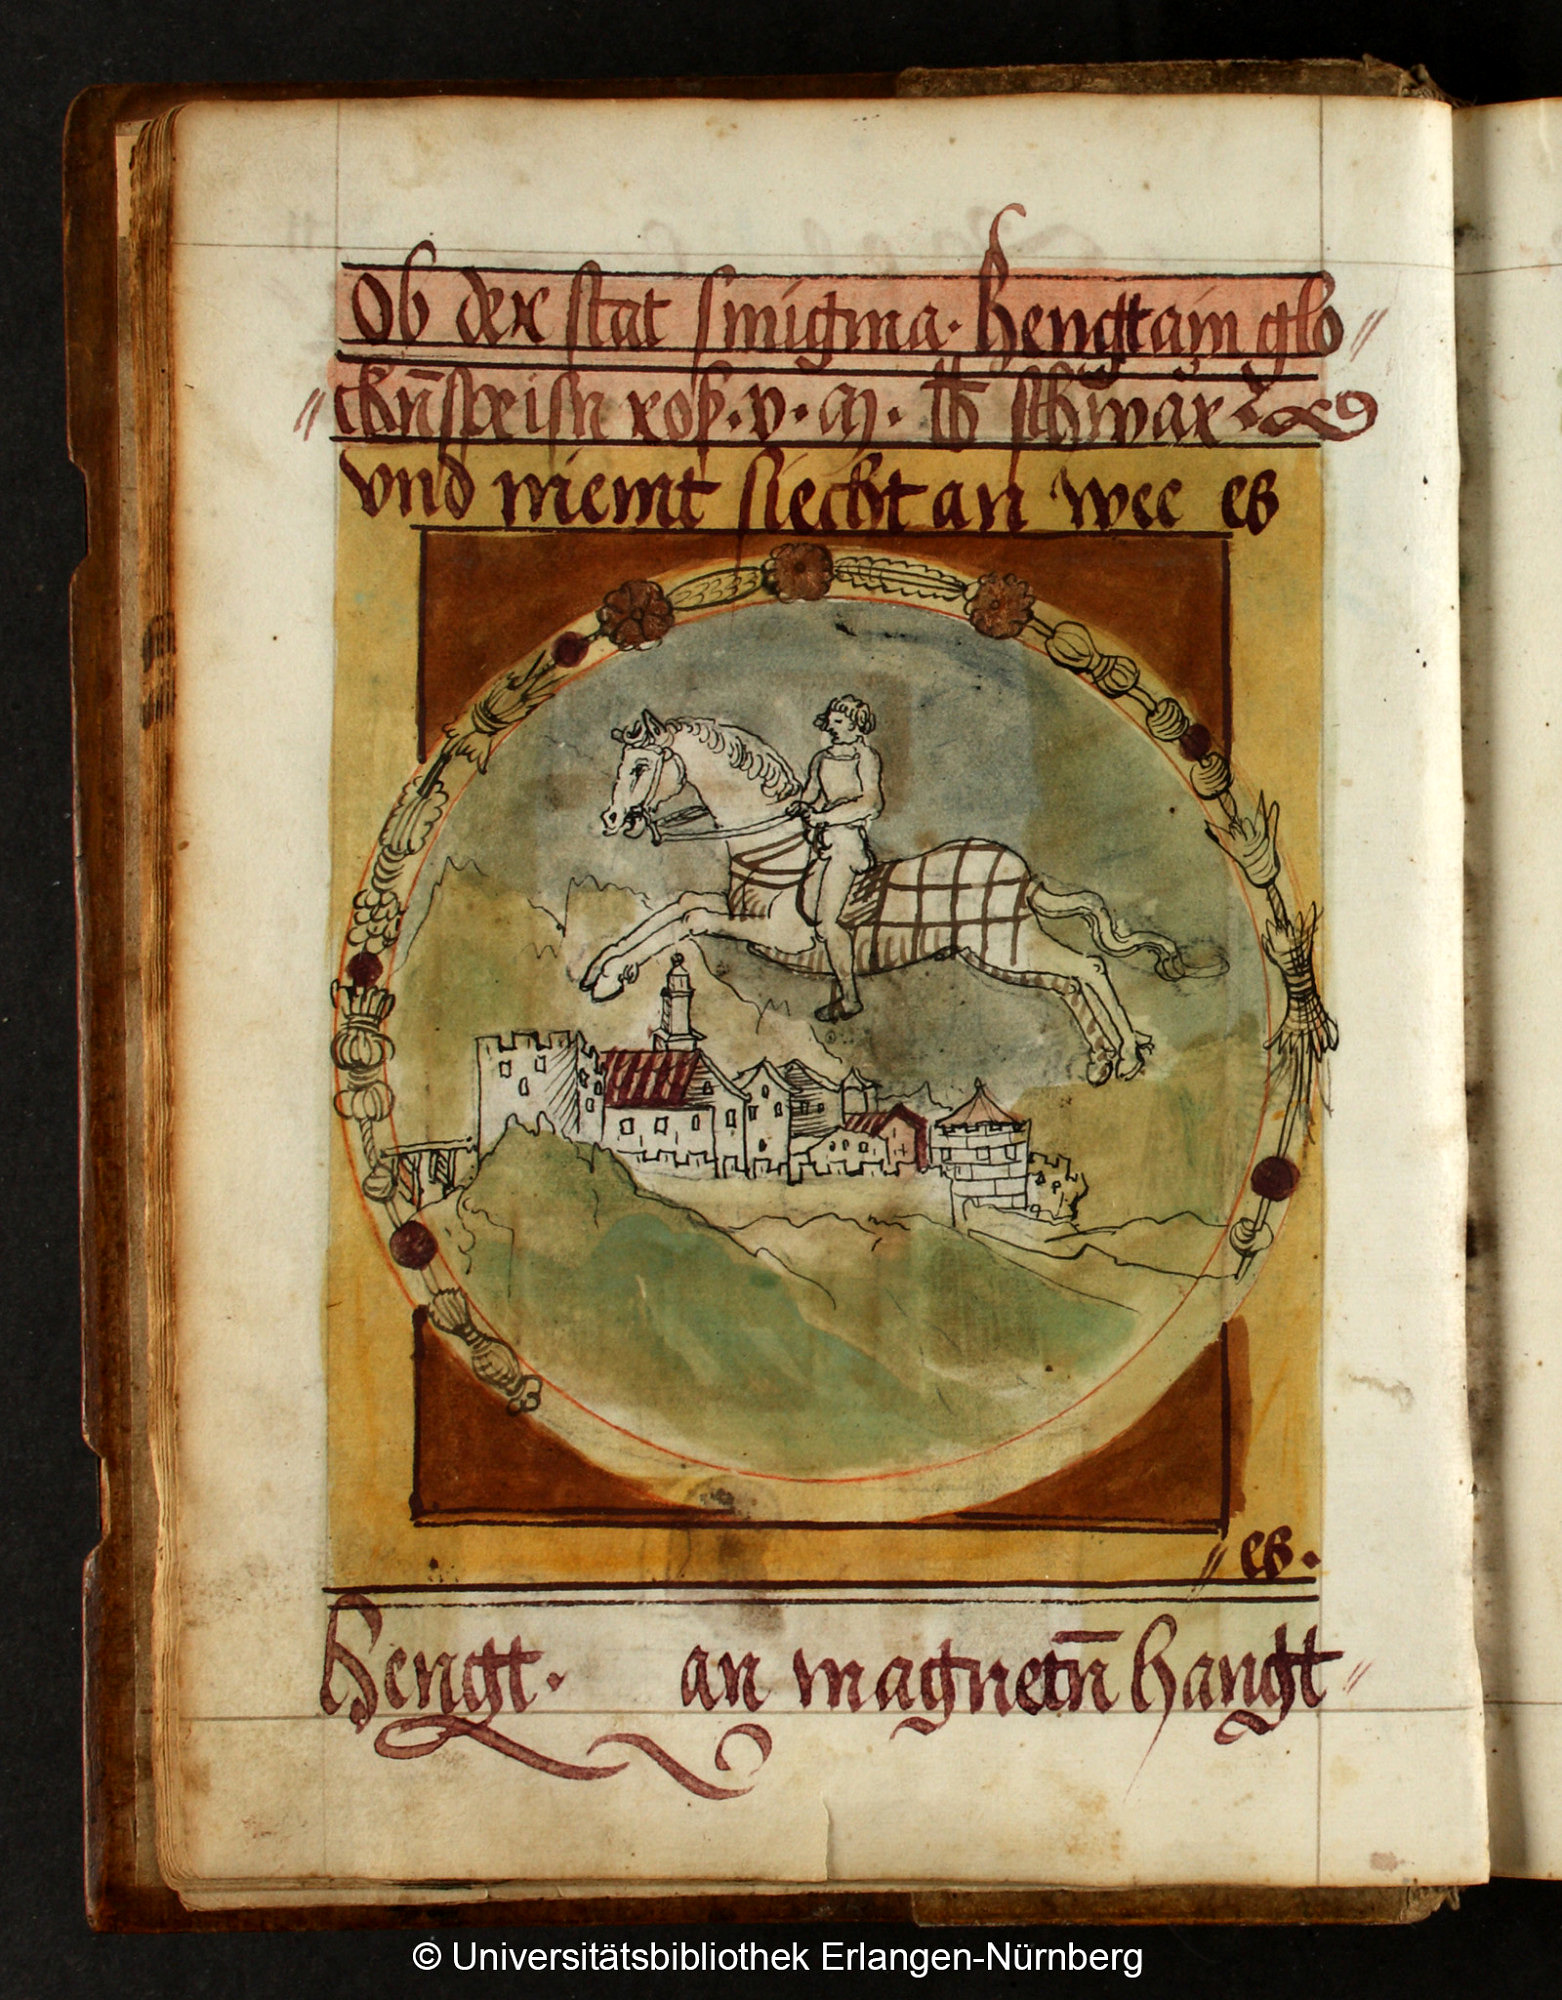 Ob der stat smigma. Hengt ain glo//
//ckn̄speisn roß. v. m. ℔ schwär
vnd niemt siecht an wee es
//es.
Hengt. an magnetn̄ hangt//
© Universitätsbibliothek Erlangen-Nürnberg